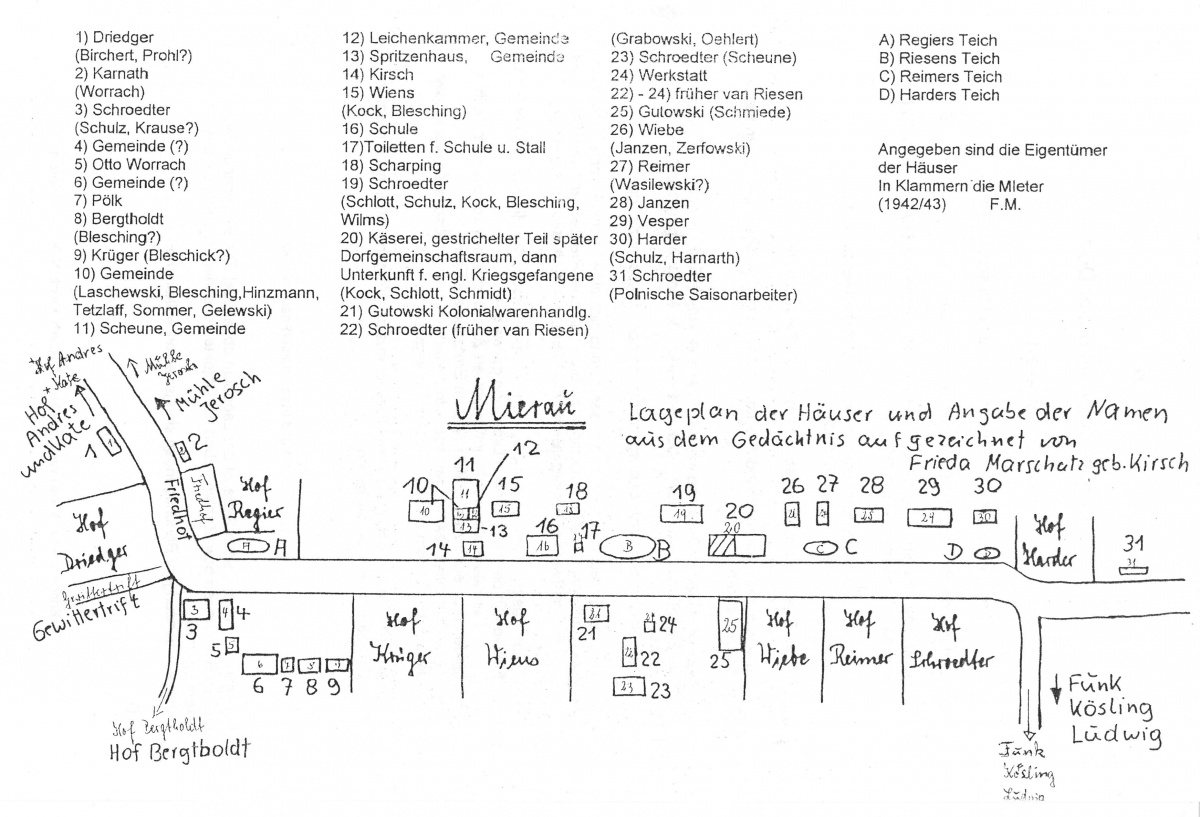 1) Driedger
(Birchert, Prohl?)
2) Karnath
(Worrach)
3) Schroedter
(Schulz, Krause?)
4) Gemeinde (?)
5) Otto Worrach
6) Gemeinde (?)
7) Pölk
8) Bergtholdt
(Blesching?)
9) Krüger (Bleschick?)
10) Gemeinde
(Laschewski, Blesching,Hinzmann,
Tetzlaff, Sommer, Gelewski)
11) Scheune, Gemeinde
12) Leichenkammer, Gemeinde
13) Spritzenhaus, Gemeinde
14) Kirsch
15) Wiens
(Kock, Blesching)
16) Schule
17)Toiletten f. Schule u. Stall
18) Scharping
19) Schroedter
(Schlott, Schulz, Kock, Blesching,
Wilms)
20) Käserei, gestrichelter Teil später
Dorfgemeinschaftsraum, dann
Unterkunft f. engl. Kriegsgefangene
(Kock, Schlott, Schmidt)
21) Gutowski Kolonialwarenhandlg.
22) Schroedter (früher van Riesen)
(Grabowski, Oehlert)
23) Schroedter (Scheune)
24) Werkstatt
22) - 24) früher van Riesen
25) Gutowski (Schmiede)
26) Wiebe
(Janzen, Zerfowski)
27) Reimer
(Wasilewski?)
28) Janzen
29) Vesper
30) Harder
(Schulz, Harnarth)
31 Schroedter
(Polnische Saisonarbeiter)
A) Regiers Teich
B) Riesens Teich
C) Reimers Teich
D) Harders Teich
Angegeben sind die Eigentümer
der Häuser
In Klammern die MIeter
(1942/43) F.M.
Hof Andres
+ Kate
Mühle
Jerosch
Hof
Andres
und Kate
Mühle
Jerosch
Mieraŭ
Lageplan der Häuser und Angabe der Namen
aus dem Gedächtnis aufgezeichnet von
Frieda Marschatz geb. Kirsch
1
2
Friedhof
Friedhof
Hof
Regier
A A
Hof
Driedger
Gewittertrift
Gewittertrift
10 10
11 11
12
13 13
14 14
15 15
16 16
17
18 18
19 19
20 20
B B
26
27
28 28
29 29
30 30
C C
D D
Hof
Harder
31 31
3 3
4 4
5 5
6 6
7 7
8 8
9 9
Hof
Krüger
Hof
Wiens
21 21
22 22
23 23
24
25 25
Hof
Wiebe
Hof
Reimer
Hof
Schroedter
Hof Bergtholdt
Hof Bergtboldt
Fŭnk
Kösling
Lŭdwig
Fŭnk
Kösling
Lŭdwig